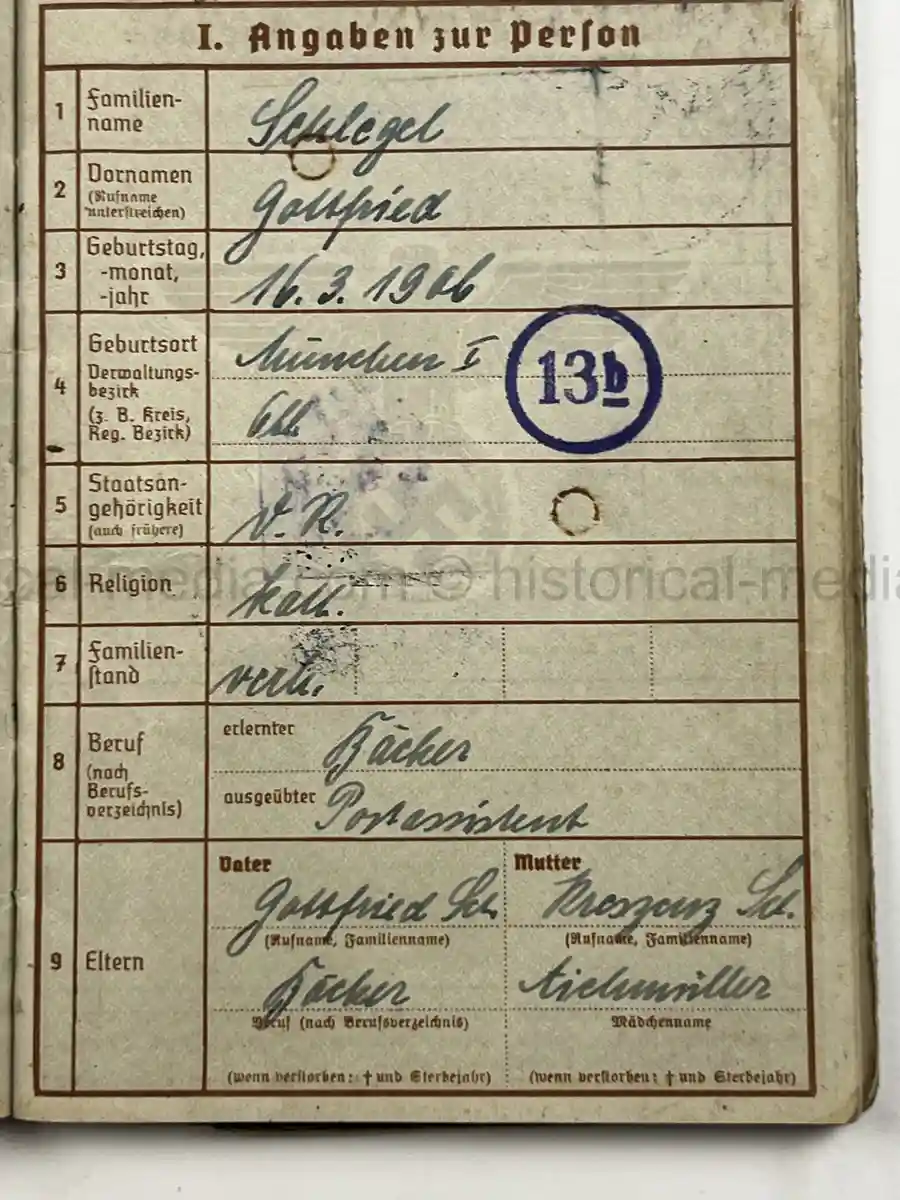 I. Angaben zur Person
1 Familien-
name
Schlegel
2 Vornamen
(Rufname
unterstreichen)
Gottfried
3 Geburtstag,
-monat,
-jahr
16.3.1906
4 Geburtsort
Verwaltungs-
bezirk
(z. B. Kreis,
Reg. Bezirk)
München I
13b
5 Staatsan-
gehörigkeit
(auch frühere)
D. R.
cal-media.com © historical-media
6 Religion
kath.
7 Familien-
stand
verh.
8 Beruf
(nach
Berufs-
verzeichnis)
erlernter Bäcker
ausgeübter Postassistent
9 Eltern
Vater
Gottfried Sch.
(Rufname, Familienname)
Bäcker
Beruf (nach Berufsverzeichnis)
(wenn verstorben: † und Sterbejahr)
Mutter
Kreszenz Sch.
(Rufname, Familienname)
Aichmiller
Mädchenname
(wenn verstorben: † und Sterbejahr)